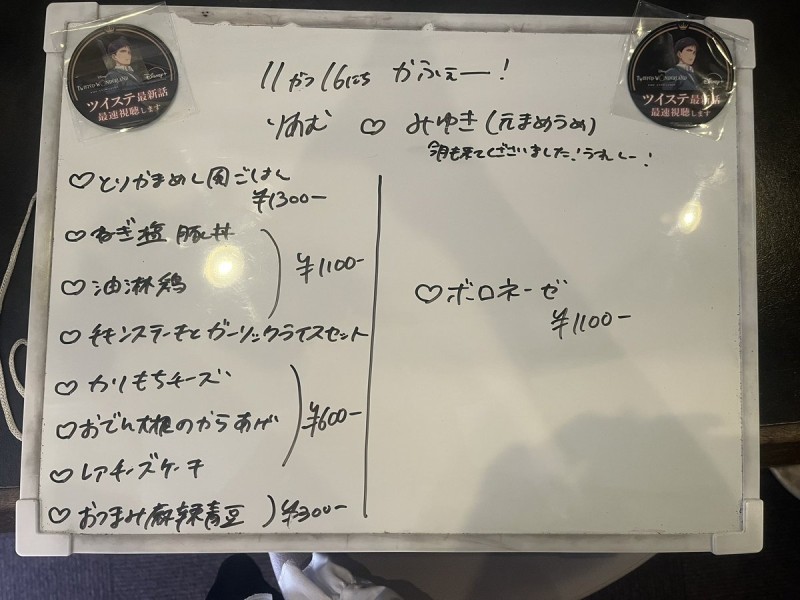 11がつ16にち かふぇー!
りあむ ♡ みゆき(元まめうめ)
今月も来てございました!うれしー!
♡とりかまめし風ごはん
¥1300-
♡ ねぎ塩 豚丼
¥1100-
♡ 油淋鶏
♡ チキンステーキとガーリックライスセット
♡ カリもちチーズ
♡おでん大根のからあげ
¥600-
♡ レアチーズケーキ
♡ おつまみ麻辣青豆 ) ¥300-
♡ボロネーゼ
¥1100-
TWISTED WONDERLAND
Disney+
ツイステ最新話
最速視聴します
TWISTED WONDERLAND
Disney+
ツイステ最新話
最速視聴します